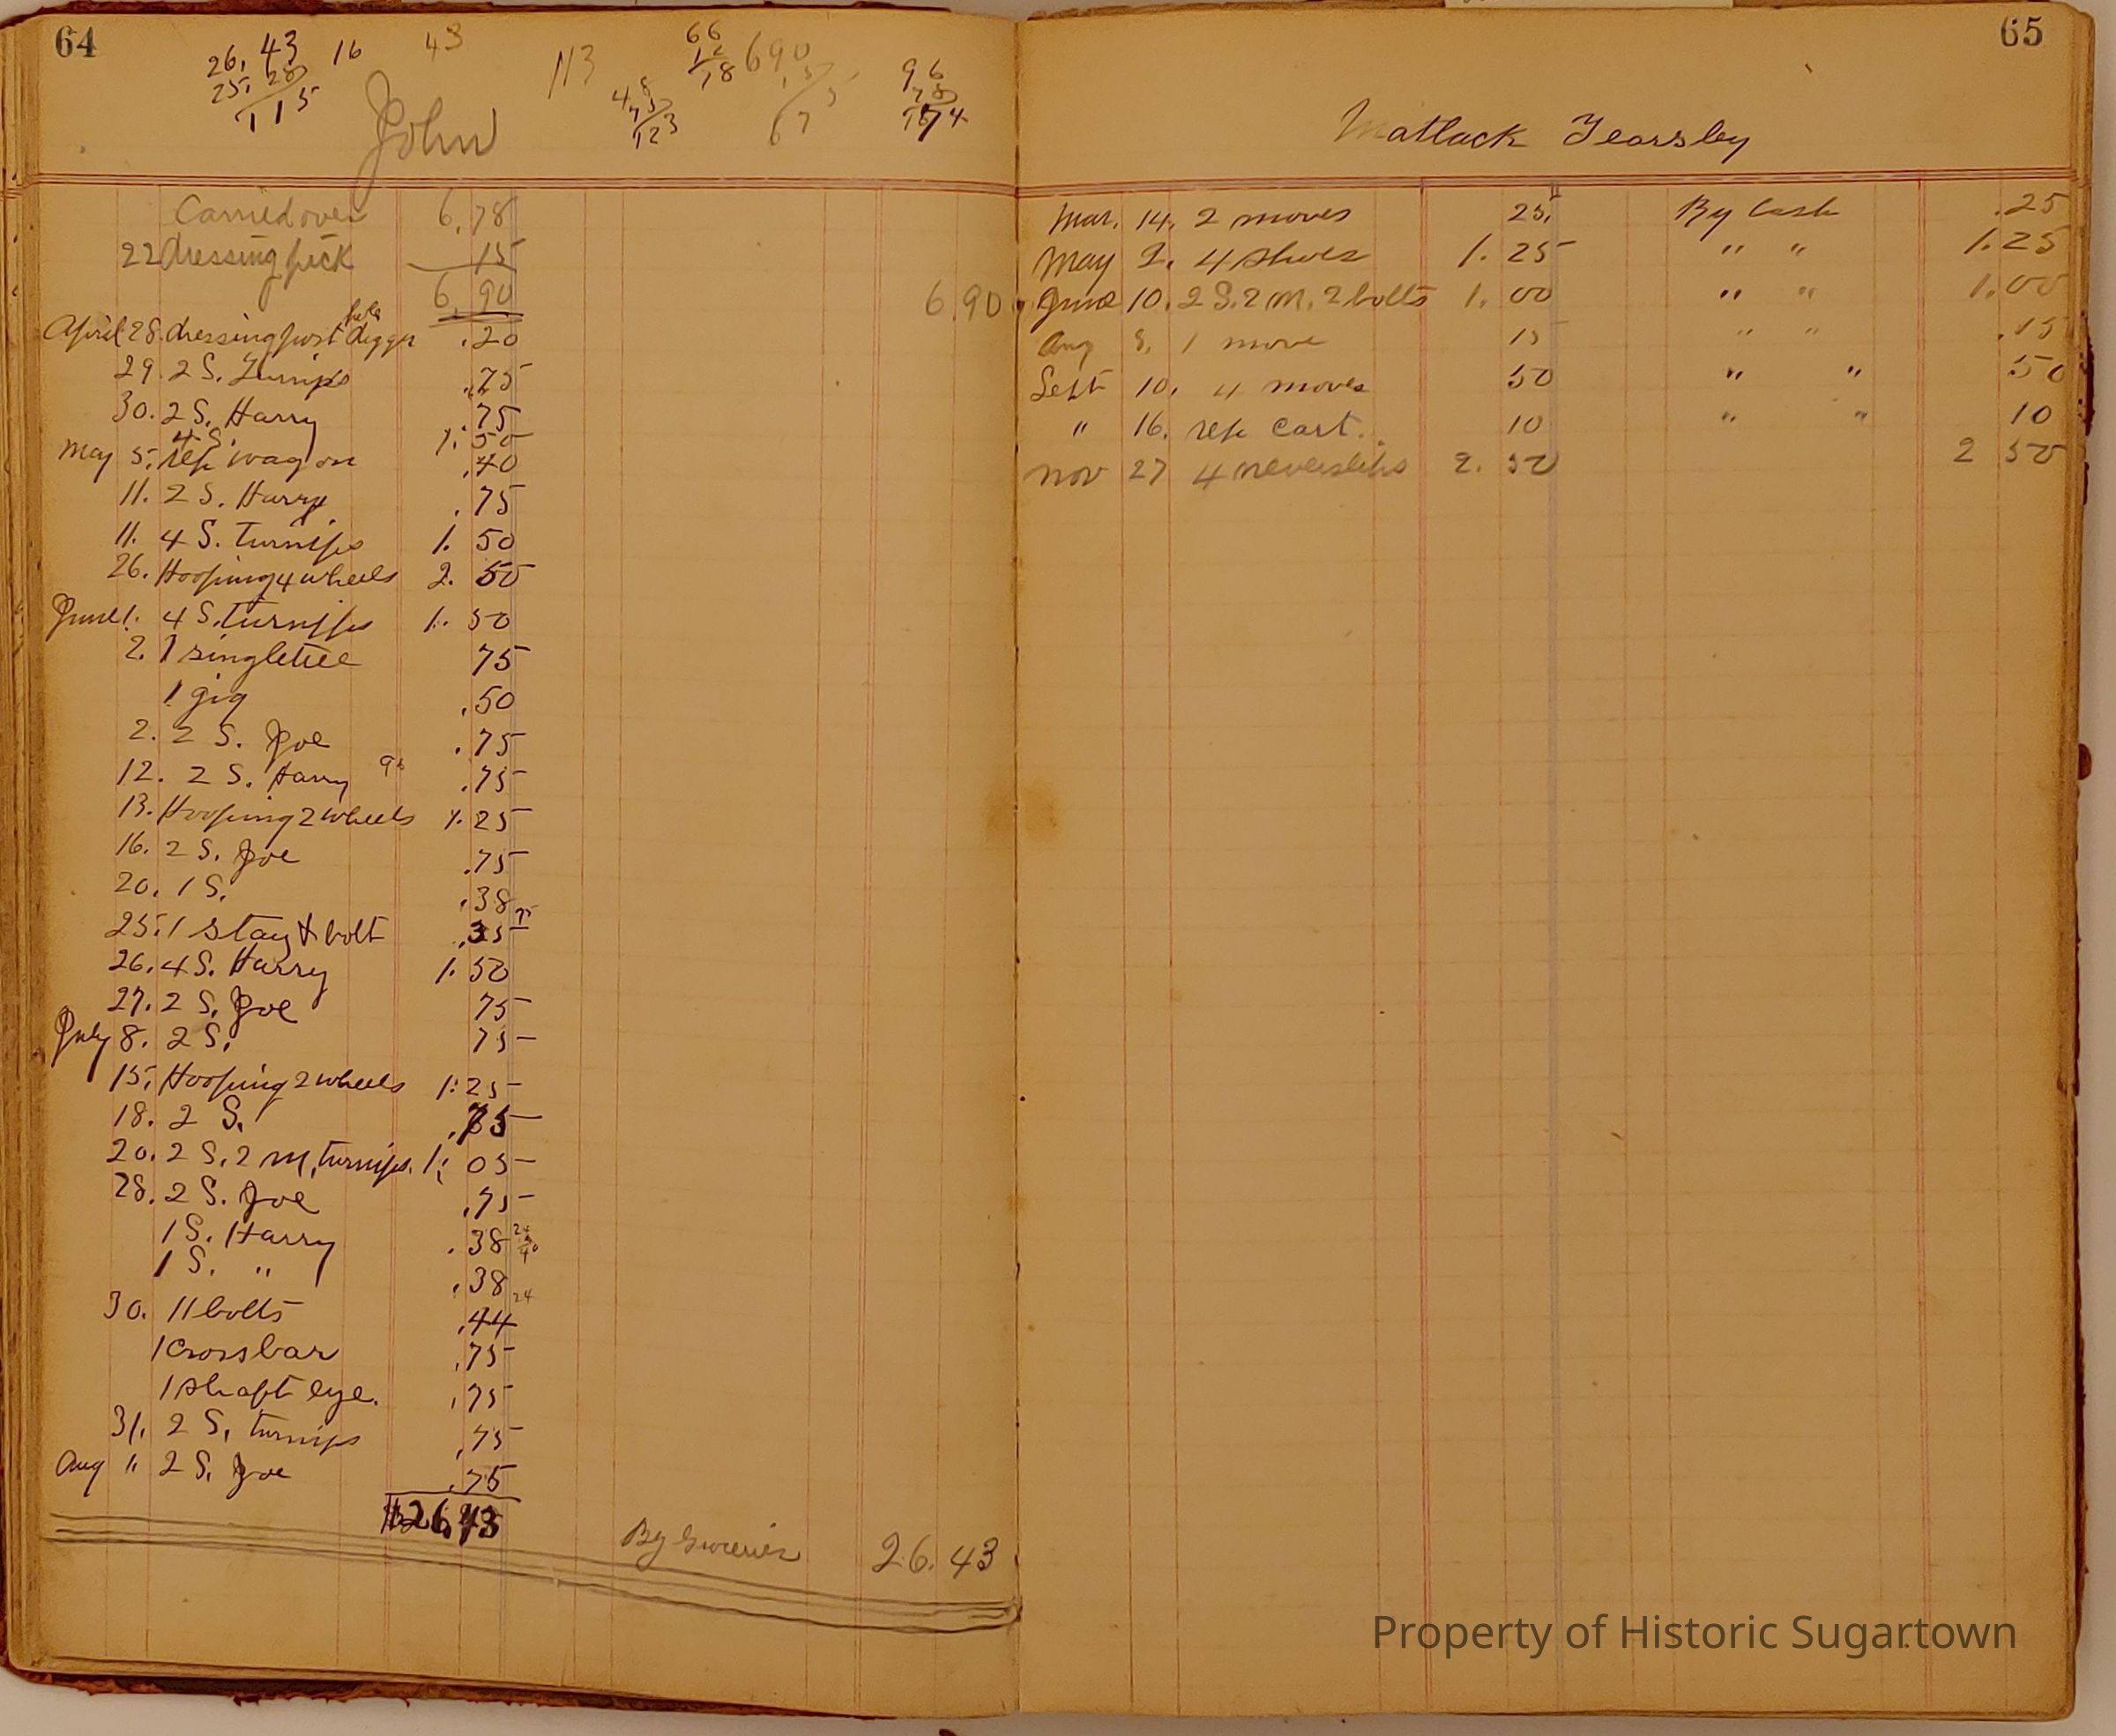 64
26.43 16 43 113 66 690 96
25.28 12
1 15 .78 67 5 174
123
John
Carried over 6.78
22 dressing pick 15
6.90 6.90
April 28. dressing post hole digger .20
29. 2 S. Turnips .75
30. 2 S. Harry .75
4 S. 1.50
May 5. rep wagon .40
11. 2 S. Harry .75
11. 4 S. Turnips 1.50
26. Hooping 4 wheels 2.50
June 1. 4 S. turnips 1.50
2. 1 singletree 75
1 gig .50
2. 2 S. Joe .75
12. 2 S. Harry 96 .75
13. Hooping 2 wheels 1.25
16. 2 S. Joe .75
20. 1 S. .38
25. 1 stay & bolt .35
26. 4 S. Harry 1.50
27. 2 S. Joe 75
July 8. 2 S. 75
15. Hooping 2 wheels 1.25
18. 2 S. .75
20. 2 S. 2 M. turnips. 1.05
28. 2 S. Joe .75
1 S. Harry .38
1 S. " .38 24
30. 11 bolts .44
1 Crossbar .75
1 shaft eye. .75
31. 2 S. turnips .75
Aug " 2 S. Joe .75
$26.43
By Groceries 26.43
65
Matlack Yearsley
Mar. 14. 2 moves 25. By Cash .25
May 2. 4 shoes 1.25 " " 1.25
June 10. 2 S. 2 M. 2 bolts 1.00 " " 1.00
Aug 8. 1 move 15 " " .15
Sept 10. 4 moves 50 " " 50
" 16. rep cart. 10 " " 10
Nov 27 4 neverslips 2.50 2 50
Property of Historic Sugartown